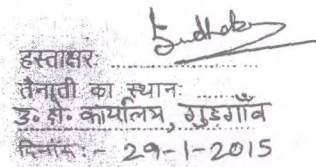 हस्ताक्षर: Sudhakar
तैनाती का स्थान
उ. क्षे. कार्यालय, गुड़गाँव
दिनांक - 29-1-2015